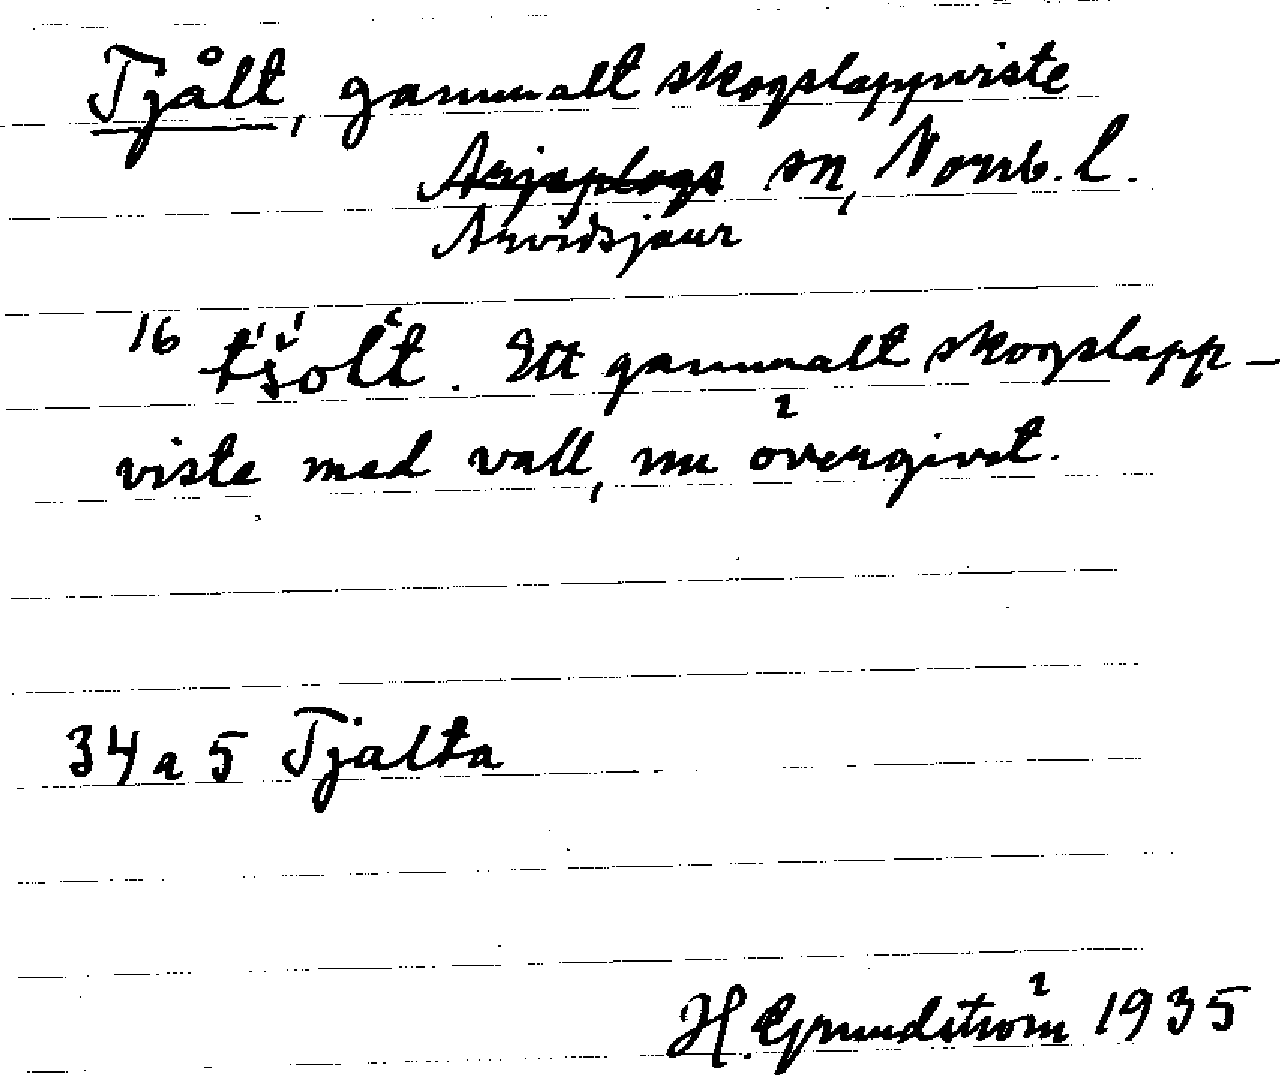 Tjålt, gammalt skogslappviste
Arjeplogs sn, Norrb. l.
Arvidsjaur
16 t́š́ol̀t. Ett gammalt skogslapp-
viste med vall, nu övergivet.
34 a 5 Tjålta
H. Grundström 1935